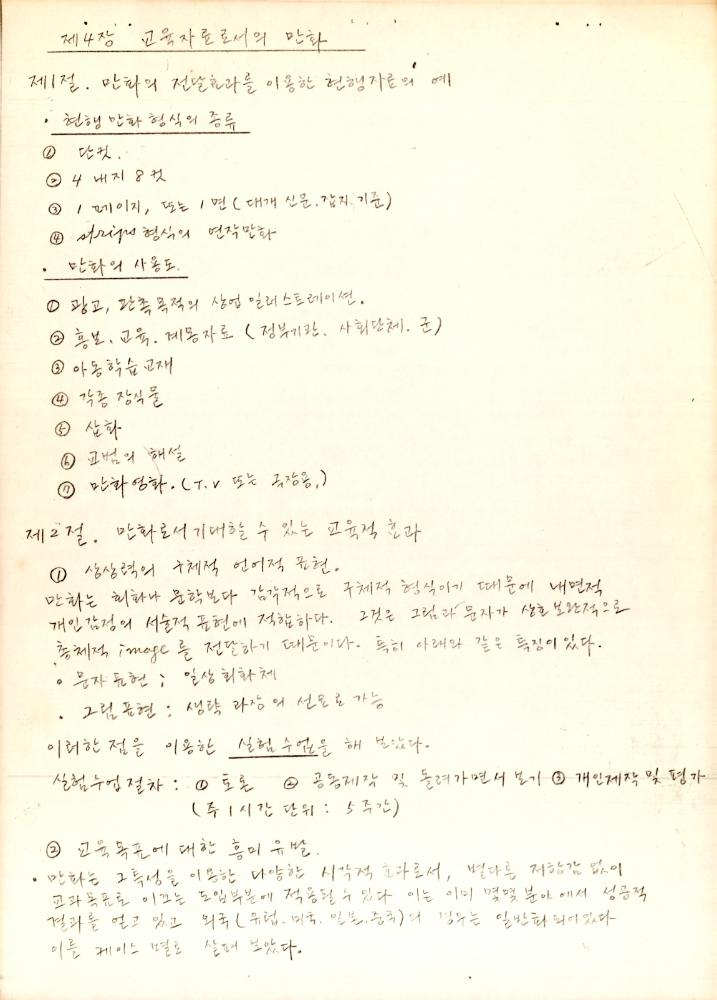 제4장 교육자료로서의 만화
제1절. 만화의 전달효과를 이용한 현행자료의 예
· 현행 만화 형식의 종류
① 단컷.
② 4 내지 8 컷
③ 1 페이지, 또는 1면 (대개 신문.잡지.기준)
④ strips 형식의 연작만화
· 만화의 사용도.
① 광고, 판촉목적의 상업 일러스트레이션.
② 홍보. 교육. 계몽자료 (정부기관. 사회단체. 군)
③ 아동학습교재
④ 각종 장식물
⑤ 삽화
⑥ 교범의 해설
⑦ 만화영화. (T.V 또는 극장용.)
제2절. 만화로서 기대할 수 있는 교육적 효과
① 상상력의 구체적 언어적 표현.
만화는 회화나 문학보다 감각적으로 구체적 형식이기 때문에 내면적
개인감정의 서술적 표현에 적합하다. 그것은 그림과 문자가 상호보완적으로
총체적 image를 전달하기 때문이다. 특히 아래와 같은 특징이 있다.
∘ 문자표현 ; 일상회화체
· 그림표현 ; 생략 과장의 선묘로 가능
이러한 점을 이용한 실험수업을 해 보았다.
실험수업절차 : ① 토론 ② 공동제작 및 돌려가면서보기 ③ 개인제작 및 평가
(주 1시간 단위 : 5주간)
② 교육목표에 대한 흥미 유발.
· 만화는 그 특성을 이용한 다양한 시각적 효과로서, 별다른 저항감 없이
교과목표로 이끄는 도입부분에 적용될 수 있다 이는 이미 몇몇 분야에서 성공적
결과를 얻고 있고 외국(유럽. 미국. 일본.중국)의 경우는 일반화되어있다
이를 케이스 별로 살펴 보았다.